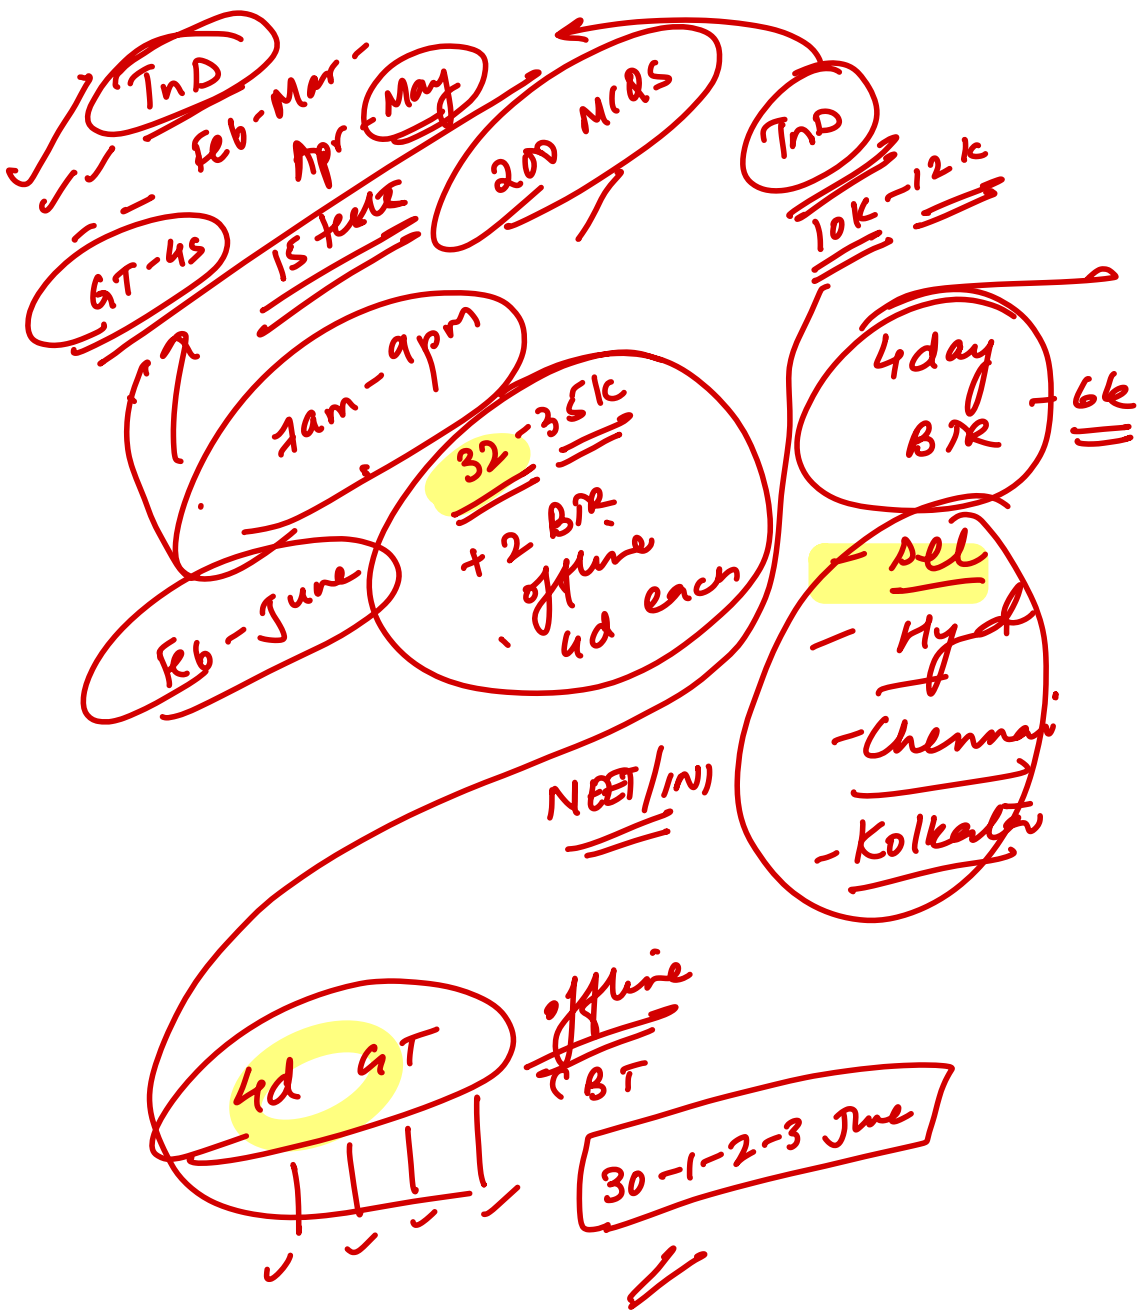 TnD
Feb-Mar-
Apr-May
200 MCQS
TnD
10K-12K
GT-4s
15 tests
7am-9pm
32-35K
+ 2 BTR
offline
4d each
4day
BTR
- 6k
- Del
- Hyd
- Chennai
- Kolkata
Feb-June
NEET/INI
4d GT
offline
CBT
30-1-2-3 June